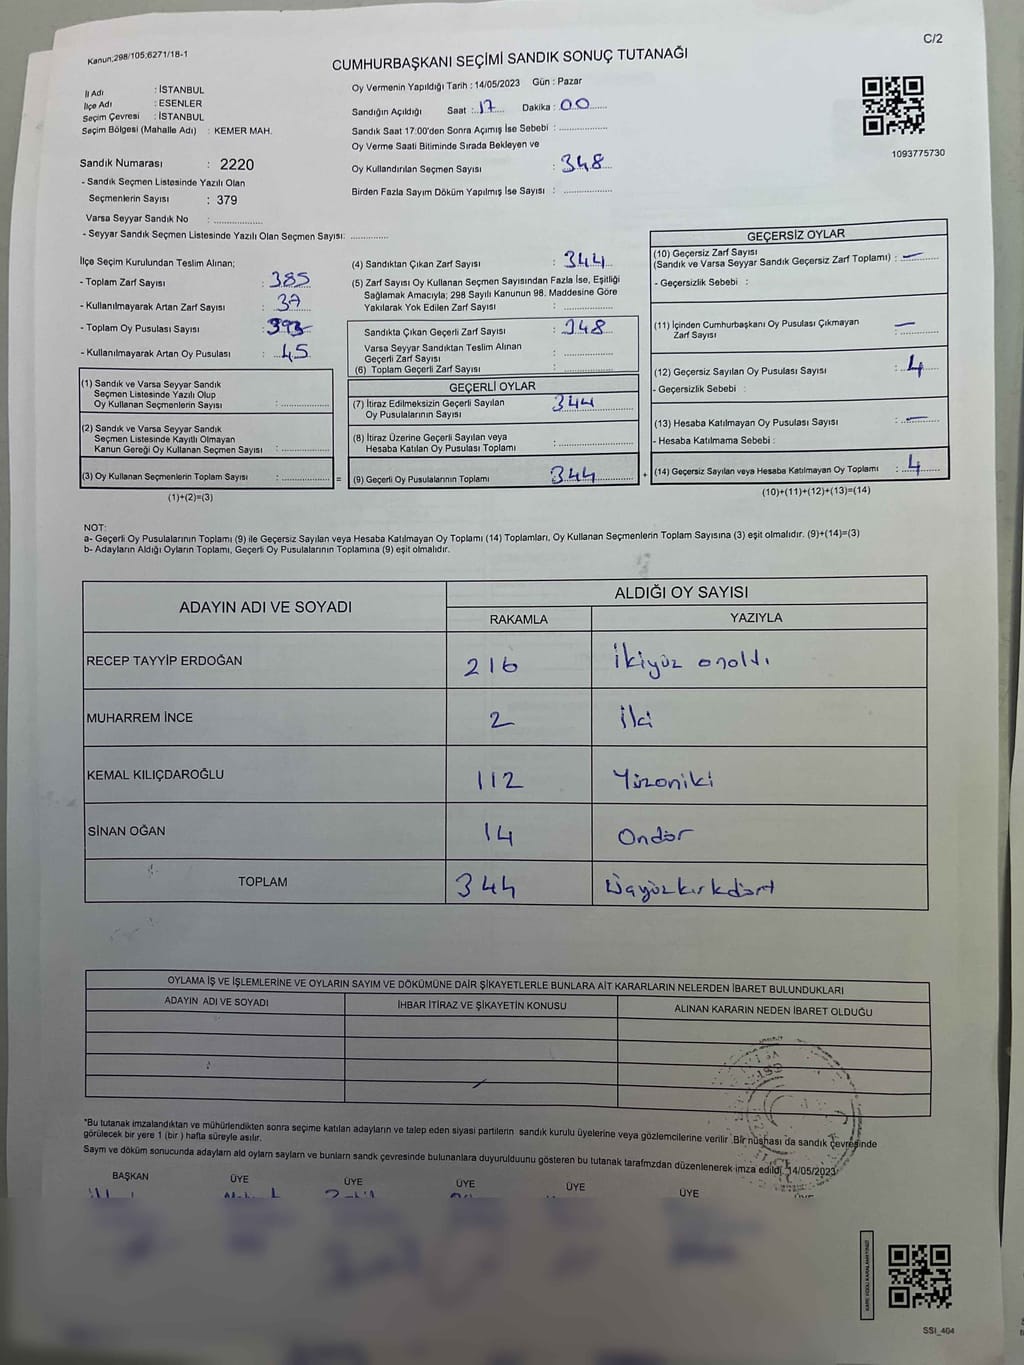 Kanun:298/105;6271/18-1
C/2
CUMHURBAŞKANI SEÇİMİ SANDIK SONUÇ TUTANAĞI
İl Adı : İSTANBUL
İlçe Adı : ESENLER
Seçim Çevresi : İSTANBUL
Seçim Bölgesi (Mahalle Adı) : KEMER MAH.
Sandık Numarası : 2220
- Sandık Seçmen Listesinde Yazılı Olan
Seçmenlerin Sayısı : 379
Varsa Seyyar Sandık No : ..................
- Seyyar Sandık Seçmen Listesinde Yazılı Olan Seçmen Sayısı: ..............
Oy Vermenin Yapıldığı Tarih : 14/05/2023 Gün : Pazar
Sandığın Açıldığı Saat : 17 Dakika : 00
Sandık Saat 17:00'den Sonra Açımış İse Sebebi : ..................
Oy Verme Saati Bitiminde Sırada Bekleyen ve
Oy Kullandırılan Seçmen Sayısı : 348
Birden Fazla Sayım Döküm Yapılmış İse Sayısı : ..................
1093775730
İlçe Seçim Kurulundan Teslim Alınan;
- Toplam Zarf Sayısı : 385
- Kullanılmayarak Artan Zarf Sayısı : 37
- Toplam Oy Pusulası Sayısı : 393
- Kullanılmayarak Artan Oy Pusulası : 45
(1) Sandık ve Varsa Seyyar Sandık
Seçmen Listesinde Yazılı Olup
Oy Kullanan Seçmenlerin Sayısı : ..................
(2) Sandık ve Varsa Seyyar Sandık
Seçmen Listesinde Kayıtlı Olmayan
Kanun Gereği Oy Kullanan Seçmen Sayısı : ..................
(3) Oy Kullanan Seçmenlerin Toplam Sayısı : .................. =
(1)+(2)=(3)
(4) Sandıktan Çıkan Zarf Sayısı : 344
(5) Zarf Sayısı Oy Kullanan Seçmen Sayısından Fazla İse, Eşitliği
Sağlamak Amacıyla; 298 Sayılı Kanunun 98. Maddesine Göre
Yakılarak Yok Edilen Zarf Sayısı : ..................
Sandıkta Çıkan Geçerli Zarf Sayısı : 348
Varsa Seyyar Sandıktan Teslim Alınan
Geçerli Zarf Sayısı : ..................
(6) Toplam Geçerli Zarf Sayısı : ..................
GEÇERLİ OYLAR
(7) İtiraz Edilmeksizin Geçerli Sayılan
Oy Pusulalarının Sayısı 344
(8) İtiraz Üzerine Geçerli Sayılan veya
Hesaba Katılan Oy Pusulaları Toplamı : ..................
(9) Geçerli Oy Pusulalarının Toplamı 344 +
GEÇERSİZ OYLAR
(10) Geçersiz Zarf Sayısı
(Sandık ve Varsa Seyyar Sandık Geçersiz Zarf Toplamı) : —
- Geçersizlik Sebebi :
(11) İçinden Cumhurbaşkanı Oy Pusulası Çıkmayan
Zarf Sayısı : —
(12) Geçersiz Sayılan Oy Pusulası Sayısı : 4
- Geçersizlik Sebebi :
(13) Hesaba Katılmayan Oy Pusulası Sayısı : —
- Hesaba Katılmama Sebebi :
(14) Geçersiz Sayılan veya Hesaba Katılmayan Oy Toplamı : 4
(10)+(11)+(12)+(13)=(14)
NOT:
a- Geçerli Oy Pusulalarının Toplamı (9) ile Geçersiz Sayılan veya Hesaba Katılmayan Oy Toplamı (14) Toplamları, Oy Kullanan Seçmenlerin Toplam Sayısına (3) eşit olmalıdır. (9)+(14)=(3)
b- Adayların Aldığı Oyların Toplamı, Geçerli Oy Pusulalarının Toplamına (9) eşit olmalıdır.
ADAYIN ADI VE SOYADI
ALDIĞI OY SAYISI
RAKAMLA YAZIYLA
RECEP TAYYİP ERDOĞAN 216 İkiyüz onaltı
MUHARREM İNCE 2 İki
KEMAL KILIÇDAROĞLU 112 Yüzoniki
SİNAN OĞAN 14 Ondör
TOPLAM 344 Üçyüzkırkdört
OYLAMA İŞ VE İŞLEMLERİNE VE OYLARIN SAYIM VE DÖKÜMÜNE DAİR ŞİKAYETLERLE BUNLARA AİT KARARLARIN NELERDEN İBARET BULUNDUKLARI
ADAYIN ADI VE SOYADI İHBAR İTİRAZ VE ŞİKAYETİN KONUSU ALINAN KARARIN NEDEN İBARET OLDUĞU
*Bu tutanak imzalandıktan ve mühürlendikten sonra seçime katılan adayların ve talep eden siyasi partilerin sandık kurulu üyelerine veya gözlemcilerine verilir. Bir nüshası da sandık çevresinde
görülecek bir yere 1 (bir ) hafta süreyle asılır.
Saym ve döküm sonucunda adaylarn ald oylarn saylarn ve bunlarn sandk çevresinde bulunanlara duyurulduunu gösteren bu tutanak tarafmzdan düzenlenerek imza edildi. 14/05/2023
BAŞKAN ÜYE ÜYE ÜYE ÜYE ÜYE
KARE KODU KARALAMAYINIZ!
SSI_404